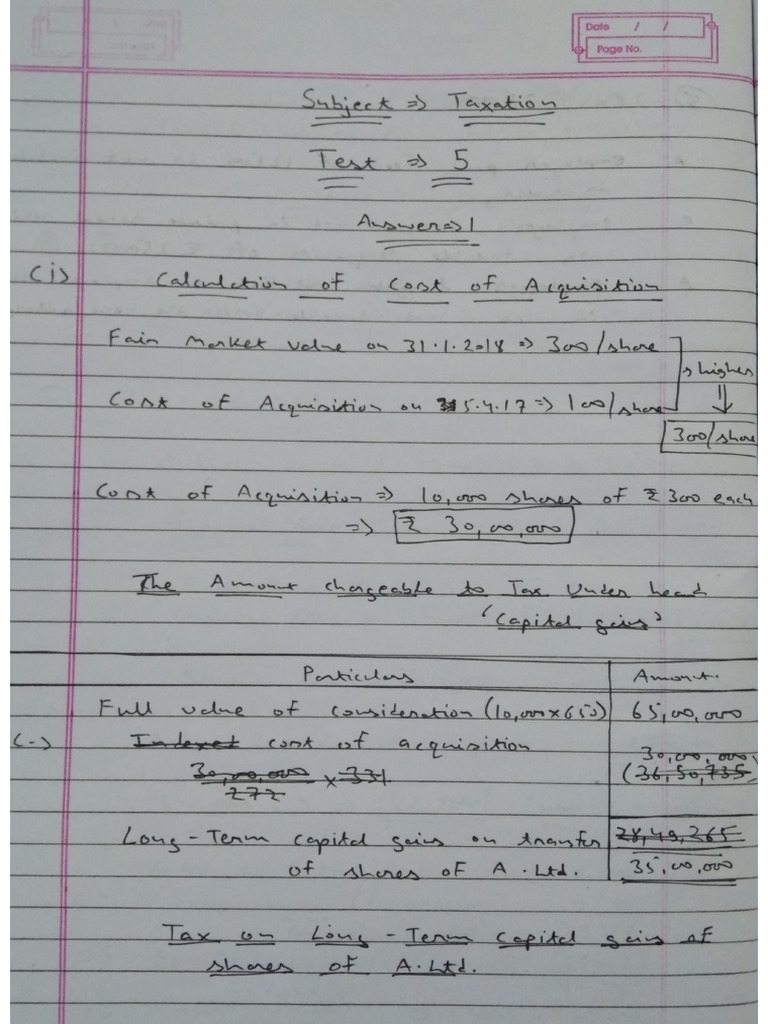 Date / /
Page No.
Subject ⇒ Taxation
Test ⇒ 5
Answer⇒1
(i) Calculation of Cost of Acquisition
Fair Market Value on 31.1.2018 ⇒ 300/share
higher
Cost of Acquisition on 5.4.17 ⇒ 100/share
300/share
Cost of Acquisition ⇒ 10,000 shares of ₹300 each
⇒ ₹ 30,00,000
The Amount chargeable to Tax Under head
'Capital gains'
Particulars Amount.
Full value of consideration (10,000x650) 65,00,000
(-) Indexed cost of acquisition 30,00,000
30,00,000 x 331 (36,50,735
272
Long-Term capital gains on transfer 28,49,265
of shares of A. Ltd. 35,00,000
Tax on Long-Term capital gains of
shares of A. Ltd.